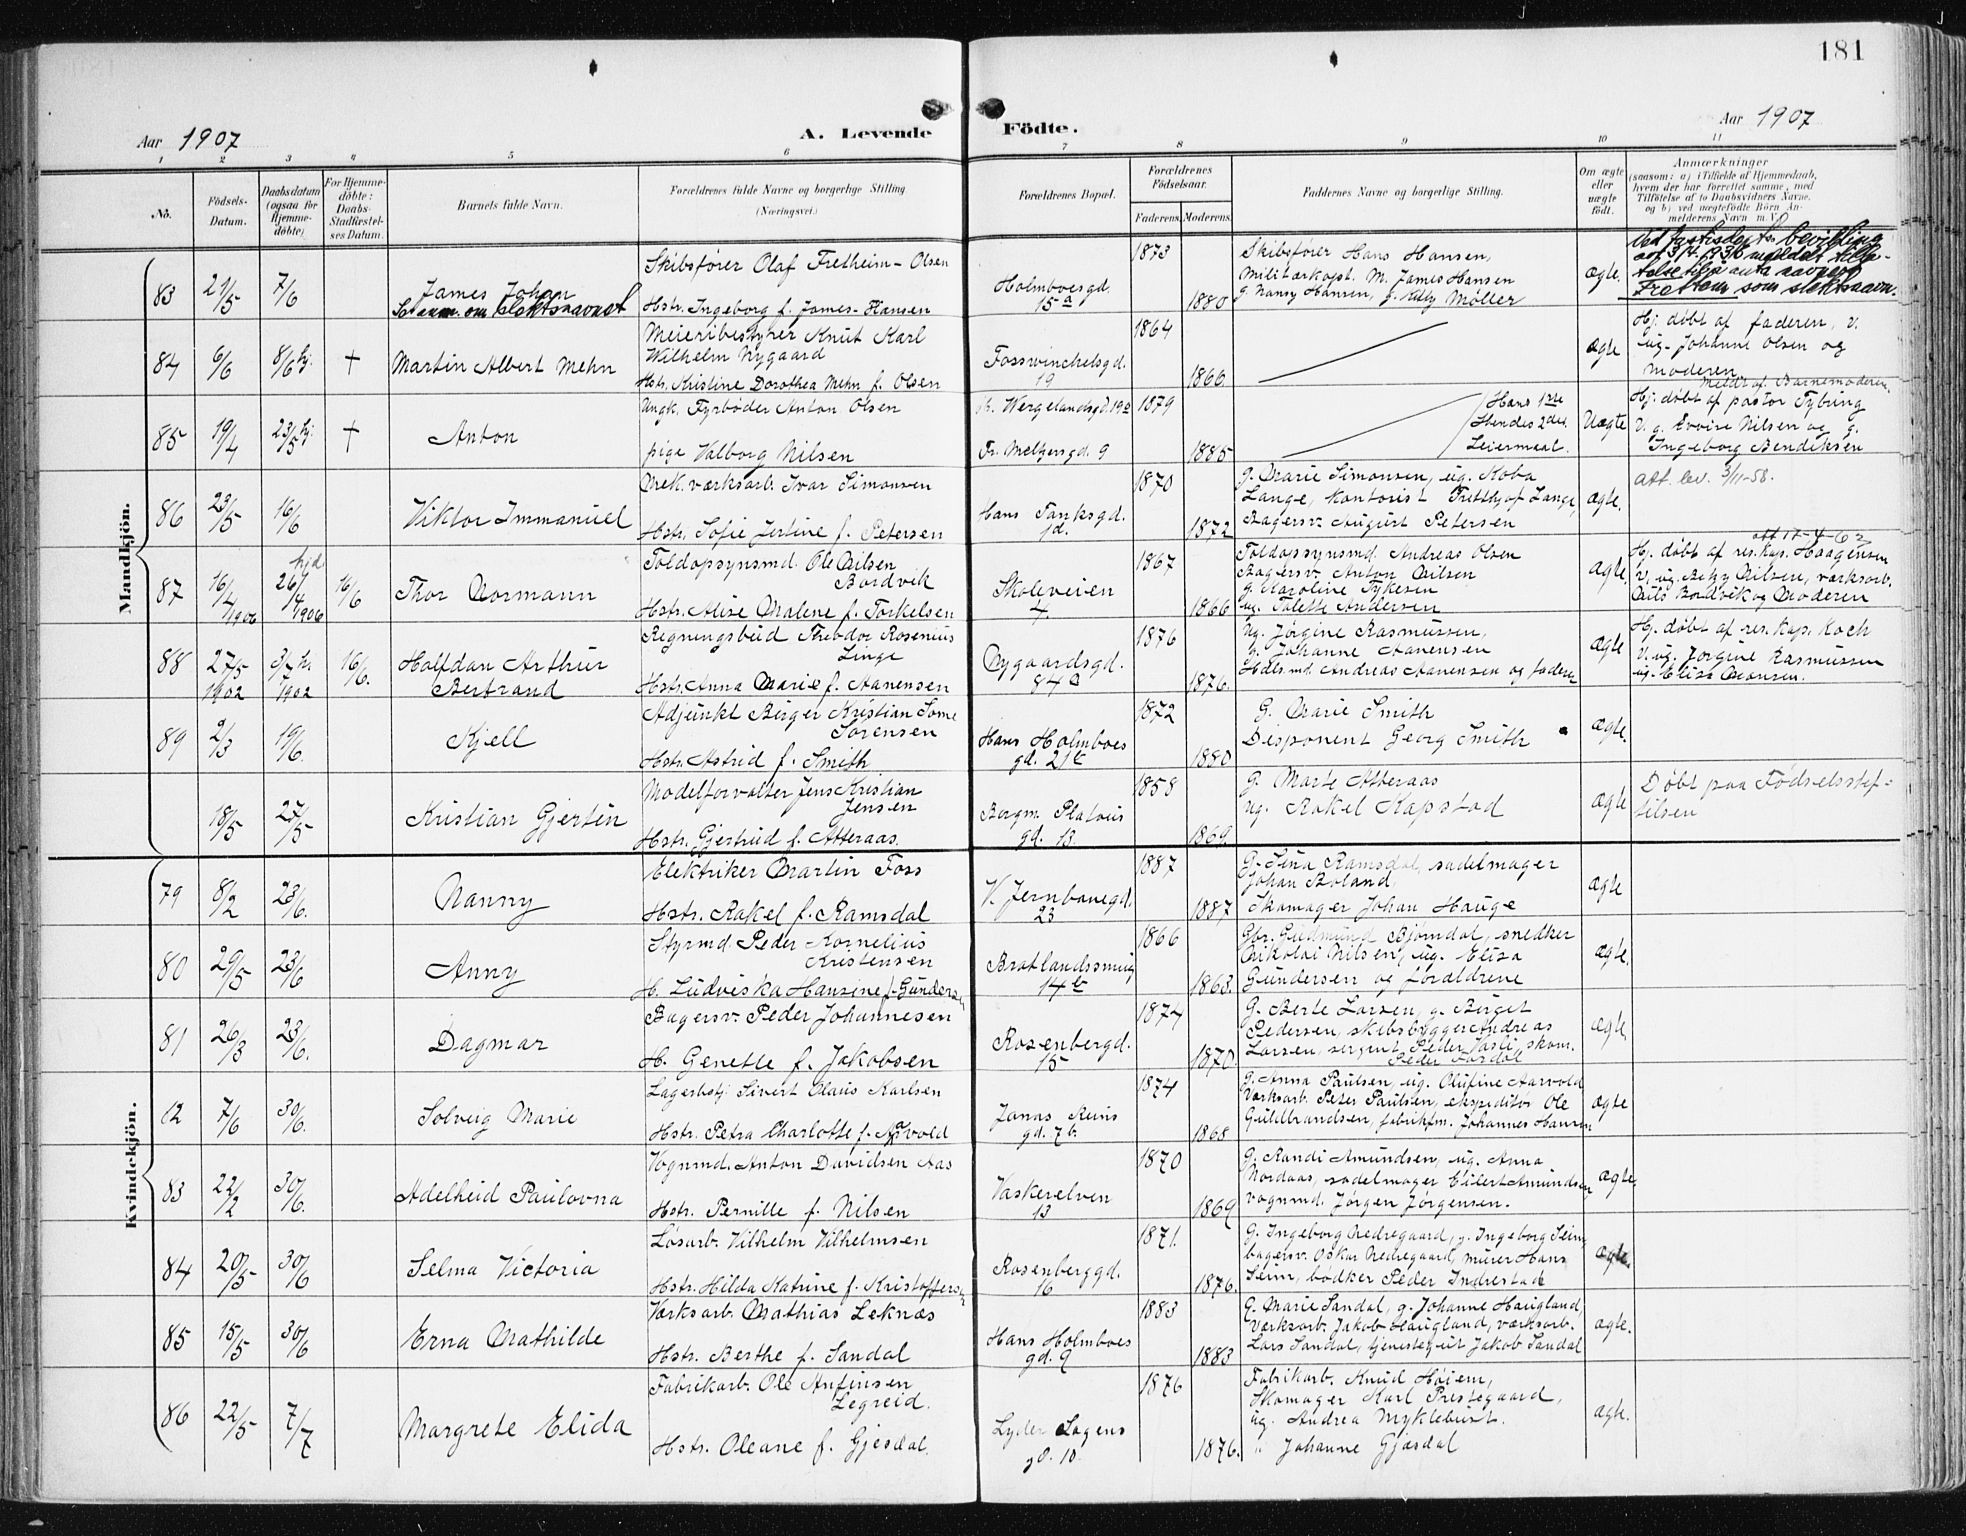 181
Aar 1907
A. Levende Födte.
Aar 1907
1 2 3 4 5 6 7 8 9 10 11
No.
Födsels-Datum.
Daabsdatum (ogsaa for Hjemme-döbte)
For Hjemme-döbte: Daabs-Stadfæstel-ses Datum.
Barnets fulde Navn.
Forældrenes fulde Navne og borgerlige Stilling
(Næringsvei.)
Forældrenes Bopæl.
Forældrenes Födselsaar.
Faderens. Moderens.
Faddernes Navne og borgerlige Stilling.
Om ægte eller uægte födt.
Anmærkninger
(saasom: a) i Tilfælde af Hjemmedaab,
hvem der har forrettet samme, med
Tilföielse af to Daabsvidners Navne,
og b) ved uægtefödte Börn An-
melderens Navn m. V.)
Mandkjön.
83 21/5 7/6
James Johan
Se anm. om slektsnavnet
Skibsfører Olaf Fretheim-Olsen
Hstr. Ingeborg f. James-Hansen
Holmboesgd.
15a
1873
1880
Skibsfører Hans Hansen,
Militærkapt. M. James Hansen
g. Nanny Hansen, g. Møller
ægte.
Ved justisdepts bevilling
Fretheim som slektsnavn.
84 6/6 8/6 hj. †
Martin Albert Mehn
Meieribestyrer Knut Karl
Wilhelm Nygaard
Hstr. Kristine Dorothea Mehn f. Olsen
Fosswinckelsgd.
19
1864
1866
ægte
Hj. døbt af faderen, V.
ug. Johanne Olsen og
moderen
85 19/4 23/5 hj. †
Anton
Ungk. Fyrbøder Anton Olsen
pige Valborg Nilsen
Wergelandsgd. 19a
Fr. Meltzersgd. 9
1879
1885
Hans 1ste
Hendes 2det
Leiermaal.
Uægte
Meldt af Barnemoderen.
Hj. døbt af pastor Tybring
V. g. Nilsen og g.
Ingeborg Bendiksen
86 23/5 16/6
Viktor Immanuel
Mek. værksarb. Ivar Simonsen
Hstr. Sofie Jertine f. Petersen
Hans Tanksgd.
1d.
1870
1872
G. Marie Simonsen, ug. Koba
Lange, kontorist Fritthjof Lange,
Bagersv. August Petersen
ægte.
att. lev. 3/11-58.
87 16/4 1906 hjd. 26/4 1906 16/6
Thor Normann
Toldopsynsmd. Ole Nilsen
Bordvik
Hstr. Alise Malene f. Torkelsen
Skoleveien
4.
1867
1866
Toldopsynsmd. Andreas Olsen
Bagersv. Anton Nilsen
g. Karoline Tykesen
ug. Talette Andersen
ægte.
Hj. døbt af res. kap. Haagensen
V. ug. Betzy Nilsen, værksarb.
Nils Bordvik og Moderen
88 27/5 1902 3/7 hj. 1902 16/6.
Halfdan Arthur
Bertrand
Regningsbud Theodor Rosenius
Linge
Hstr. Anna Marie f. Aanensen
Nygaardsgd.
84
1876
1876.
Ug. Jørgine Rasmussen,
g. Johanne Aanensen
Hdlsmd. Andreas Aanensen og faderen
ægte
Hj. døbt af res. kap. Koch
V. ug. Jørgine Rasmussen
ug. Elisa Monsen.
89 2/3 19/6.
Kjell
Adjunkt Birger Kristian Some
Sørensen
Hstr. Astrid f. Smith
Hans Holmboes
gd. 21
1872
1880
G. Marie Smith
Disponent Georg Smith
ægte.
18/5 27/5
Kristian Gjertin
Modelforvalter Jens Kristian
Jensen
Hstr. Gjertrud f. Atteraas.
Borgm. Platous
gd. 13.
1858
1869.
G. Marte Atteraas
ug. Rakel Kapstad
ægte
Døbt paa Fødselsstif-
telsen
Kvindekjön.
79 8/2 23/6.
Nanny
Elektriker Martin Foss
Hstr. Rakel f. Ramsdal
V. Jernbanegd.
23
1887
1887
G. Sina Ramsdal, sadelmager
Johan Boland
Skomager Johan Hauge
ægte
80 29/5 23/6
Anny
Styrmd. Peder Kornelius
Kristensen
H. Ludviska Hansine f. Gundersen
Bratlandssmug
14b
1866
1863.
Gbr. Gudmund Bjørndal, snedker
Nikolai Nilsen, ug. Elisa
Gundersen og forældrene
ægte.
81 26/3 23/6.
Dagmar
Bagersv. Peder Johannesen
H. Genette f. Jakobsen
Rosenbergd.
15
1874
1870
G. Berte Larsen, g. Berget
Pedersen, skibsbygger Andreas
Larsen, sergent Peder, skom.
Peder
ægte
12 7/6 30/6.
Solveig Marie
Lagerbstj. Sivert Olaus Karlsen
Hstr. Petra Charlotte f. Arvold
Jonas Reins
gd. 7b.
1874
1868
G. Anna Paulsen, ug. Olufine Aarvold
Værksarb. Peter Paulsen, ekspeditør Ole
Guldbrandsen, fabrikfm. Johannes Hansen
ægte
83 22/2 30/6.
Adelheid Paulovna
Vognmd. Anton Davidsen Aas
Hstr. Pernille f. Nilsen
Vaskerelven
13
1870
1869
G. Randi Amundsen, ug. Anna
Nordaas, sadelmager Eilert Amundsen
vognmd. Jørgen Jørgensen.
ægte
84 20/5 30/6
Selma Victoria
Løsarb. Vilhelm Vilhelmsen
Hstr. Hilda Katrine f. Kristoffersen
Rosenberggd.
16
1871.
1876.
G. Ingeborg Nedregaard, g. Ingeborg Seim
bagersv. Oskar Nedregaard, murer Hans
Seim, bødker Peder Indrestad
ægte.
85 15/5 30/6
Erna Mathilde
Værksarb. Mathias Leknæs
Hstr. Berthe f. Sandal
Hans Holmboes
gd. 9
1883
1883
G. Marie Sandal, g. Johanne Haugland,
Værksarb. Jakob Haugland, værksarb.
Lars Sandal, tjenestegut Jakob Sandal
ægte.
86 22/5 7/7
Margrete Elida
Fabrikarb. Ole Anfinsen
Legreid.
Hstr. Oleane f. Gjesdal.
Lyder Sagens
gd. 10.
1876
1876.
Fabrikarb. Knud Høiem,
Skomager Karl Prestegaard,
ug. Andrea Myklebust.
" Johanne Gjesdal
ægte.